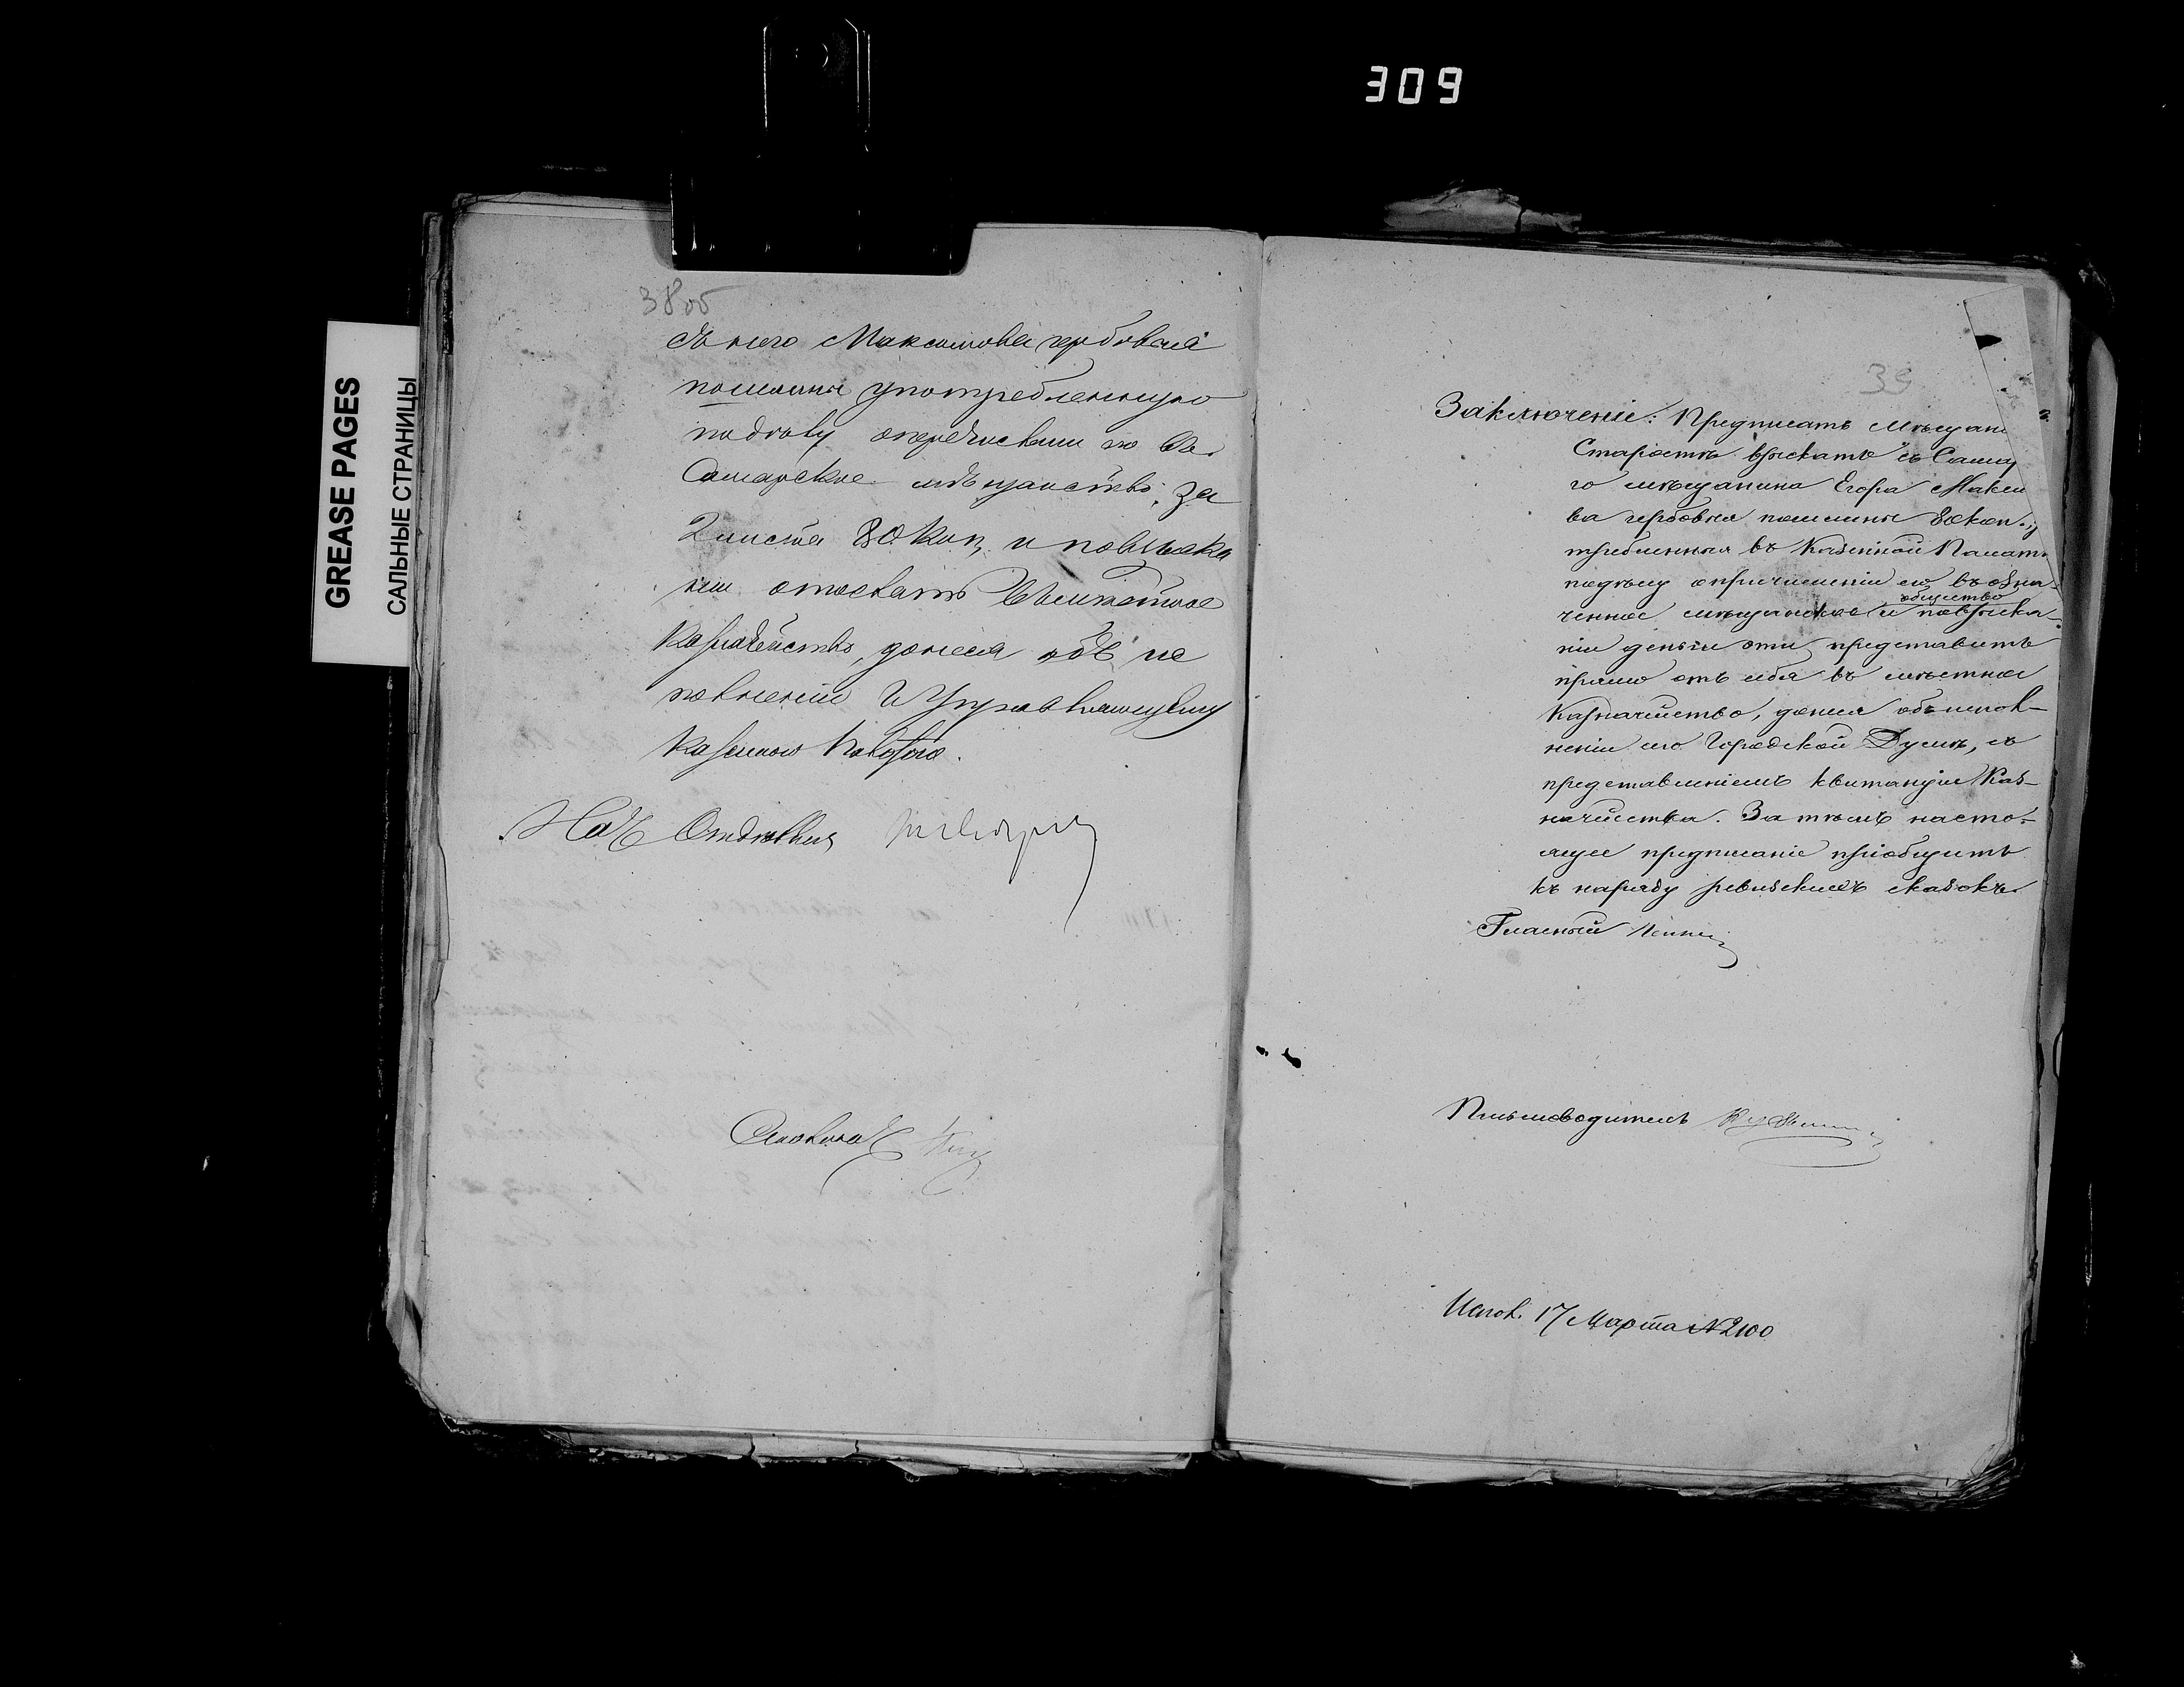 309
GREASE PAGES
САЛЬНЫЕ СТРАНИЦЫ
38об
съ него Максимова гербовыя
пошлины употребленную
по дѣлу о перечислении его въ
Самарское мѣщанство, за
2 листа 80 коп, и по взыска
нии отослать въ мѣстное
Казначейство, донеся объ ис
полнении и Управляющему
Казенною Палатою.
Нач Отдѣления
Столонач
39
Заключеніе: Предписать Мѣщан
Старостѣ взыскать съ Самар
го мѣщанина Егора Макси
ва гербовыя пошлины 80 коп. у
требленныя въ Казенной Палатѣ
по дѣлу о причисленіи его въ озна-
ченное мѣщанское общество и по взыска-
ніи деньги эти представить
прямо отъ себя въ мѣстное
Казначейство, донеся объ испол-
неніи его Городской Думѣ, съ
представленіемъ квитанціи Каз-
начейства. За тѣмъ насто-
ящее предписаніе пріобщить
къ наряду ревизскихъ сказокъ.
Гласный
Письмоводитель
Испол. 17 Марта №2100